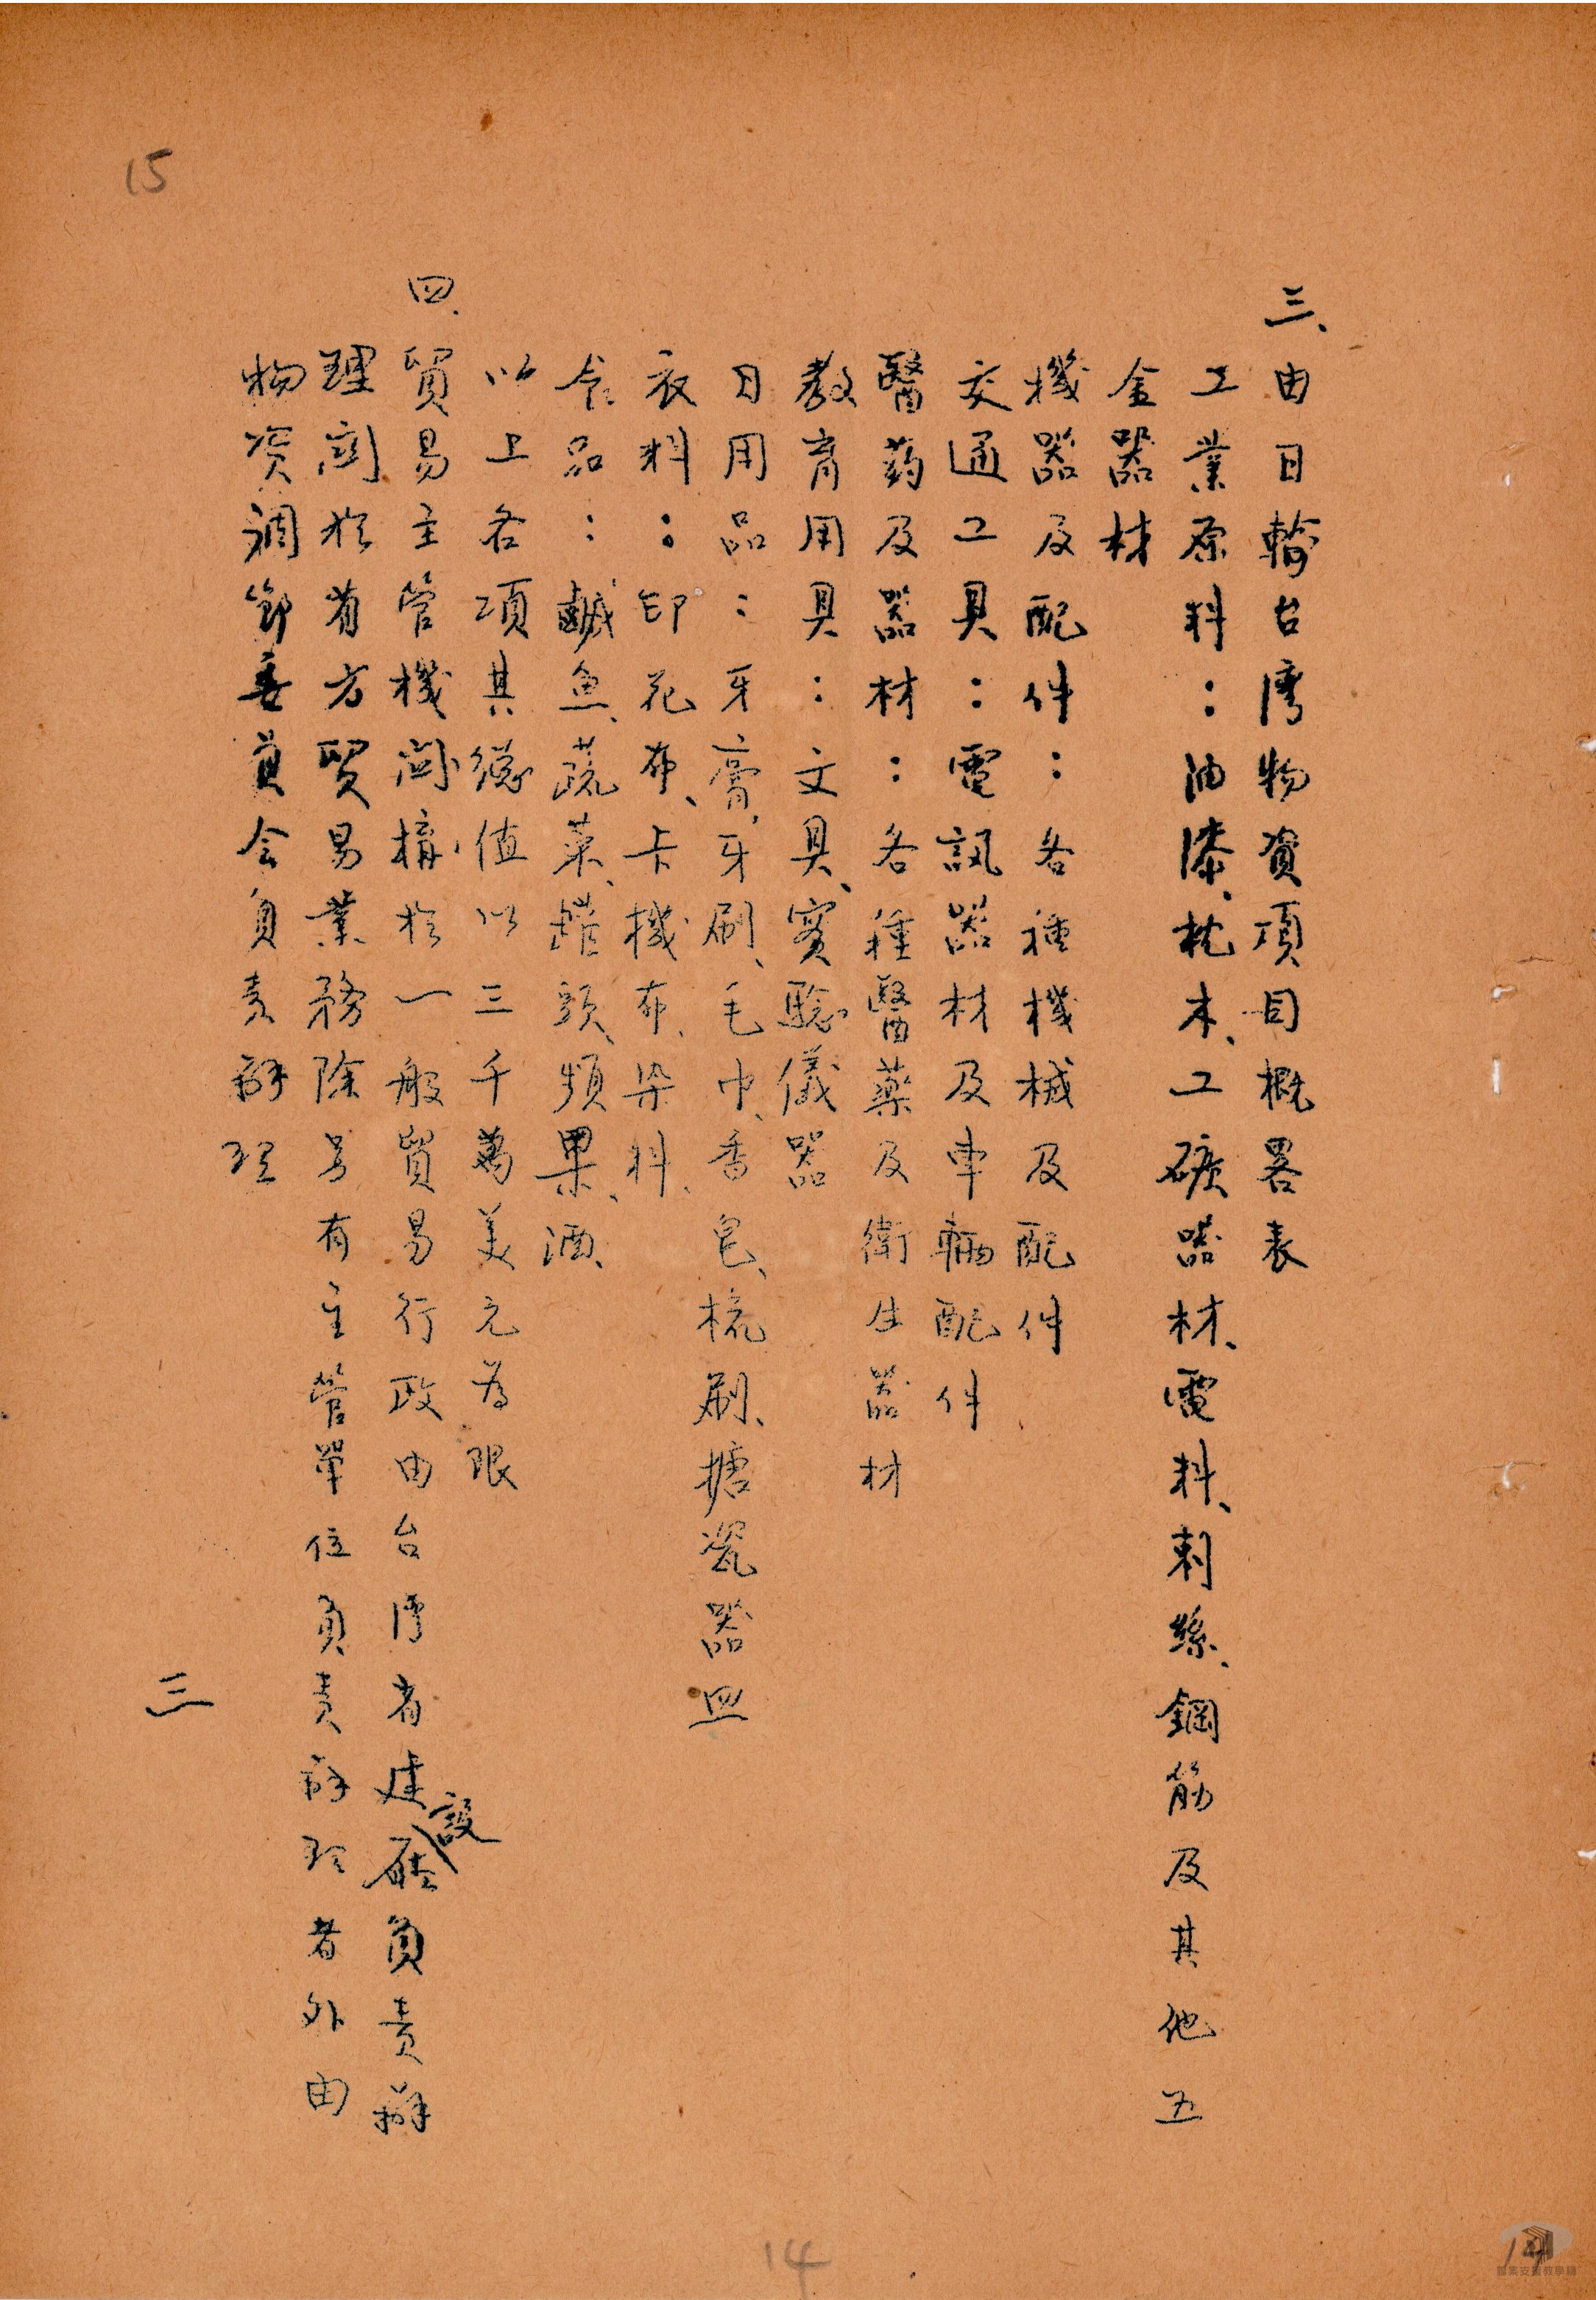 三、由日輸台灣物資項目概畧表
工業原料：油漆、枕木、工礦器材、電料、刺絲、鋼筋及其他五
金器材
機器及配件：各種機械及配件
交通工具：電訊器材及車輛配件
醫药及器材：各種醫藥及衛生器材
教育用具：文具、實驗儀器
日用品：牙膏、牙刷、毛巾、香皂、梳刷、搪瓷器皿
衣料：印花布、卡機布、染料、
食品：鹹魚、蔬菜、罐頭、頻果、酒、
以上各項其總值以三千萬美元為限
四、貿易主管機關機構於一般貿易行政由台灣省建設廳負責辦
理關於省方貿易業務除另有主管單位負責辦理者外由
物资調節委員会負责辦理
三
15
14
14
檔案支援教學網